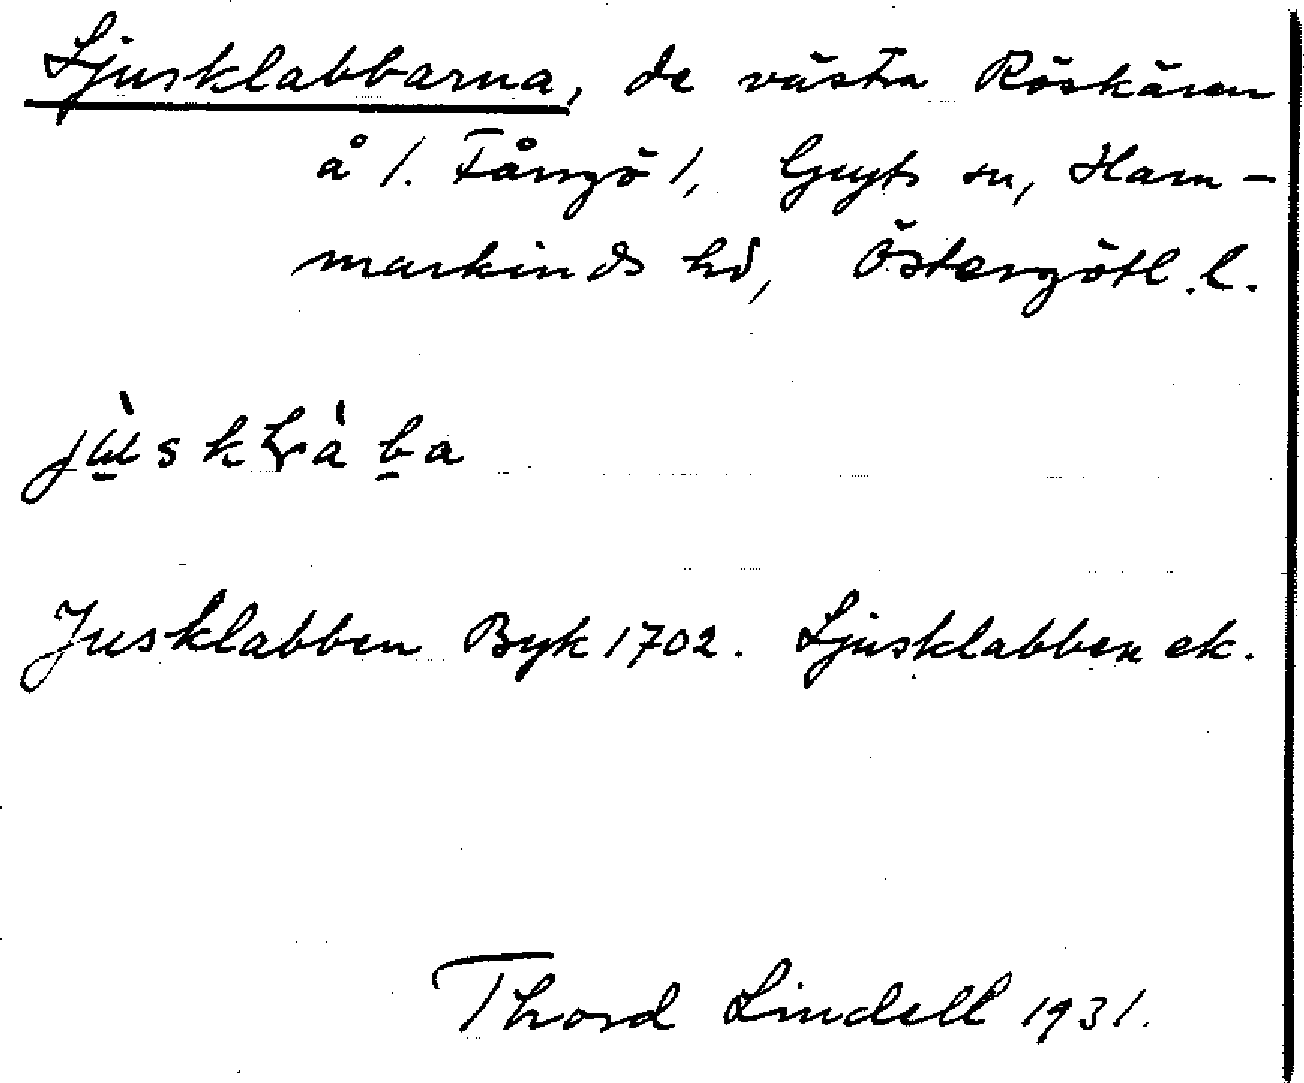 Ljusklabbarna, de västra Röskären
å /. Fångö /, Gryts sn, Ham-
markinds hd, Östergötl. l.
Jusklabben Byk 1702. Ljusklabben ek.
Thord Lindell 1931.